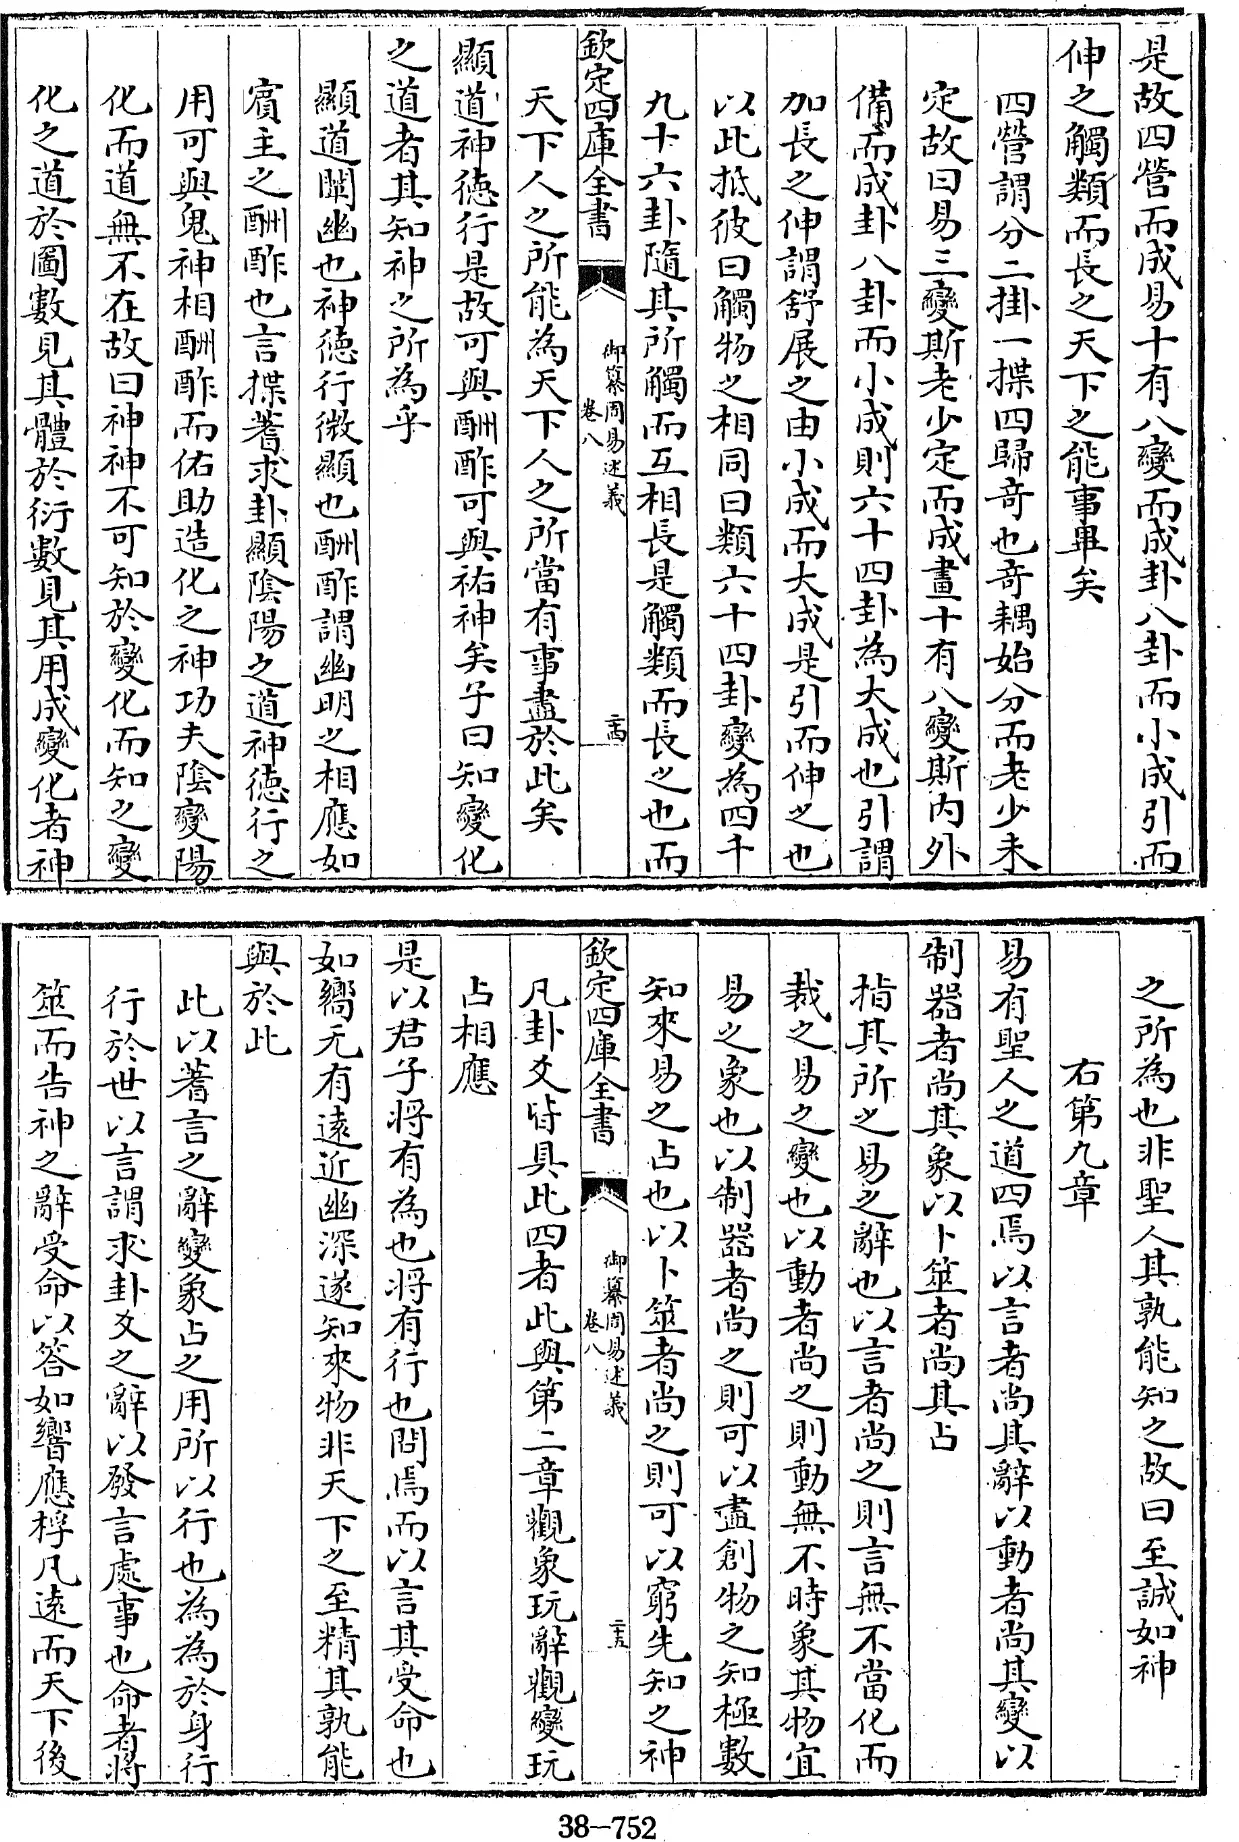 是故四營而成易十有八變而成卦八卦而小成引而
伸之觸類而長之天下之能事畢矣
四營謂分二掛一揲四歸奇也奇耦始分而老少未
定故曰易三變斯老少定而成畫十有八變斯內外
備而成卦八卦而小成則六十四卦為大成也引謂
加長之伸謂舒展之由小成而大成是引而伸之也
以此抵彼曰觸物之相同曰類六十四卦變為四千
九十六卦隨其所觸而互相長是觸類而長之也而
欽定四庫全書
御纂周易述義
卷八
二十四
天下人之所能為天下人之所當有事盡於此矣
顯道神德行是故可與酬酢可與祐神矣子曰知變化
之道者其知神之所為乎
顯道闡幽也神德行微顯也酬酢謂幽明之相應如
賓主之酬酢也言揲蓍求卦顯陰陽之道神德行之
用可與鬼神相酬酢而佑助造化之神功夫陰變陽
化而道無不在故曰神神不可知於變化而知之變
化之道於圖數見其體於衍數見其用成變化者神
之所為也非聖人其孰能知之故曰至誠如神
右第九章
易有聖人之道四焉以言者尚其辭以動者尚其變以
制器者尚其象以卜筮者尚其占
指其所之易之辭也以言者尚之則言無不當化而
裁之易之變也以動者尚之則動無不時象其物宜
易之象也以制器者尚之則可以盡創物之知極數
知來易之占也以卜筮者尚之則可以窮先知之神
欽定四庫全書
御纂周易述義
卷八
二十五
凡卦爻皆具此四者此與第二章觀象玩辭觀變玩
占相應
是以君子將有為也將有行也問焉而以言其受命也
如嚮无有遠近幽深遂知來物非天下之至精其孰能
與於此
此以蓍言之辭變象占之用所以行也為為於身行
行於世以言謂求卦爻之辭以發言處事也命者將
筮而告神之辭受命以答如響應桴凡遠而天下後
38-752